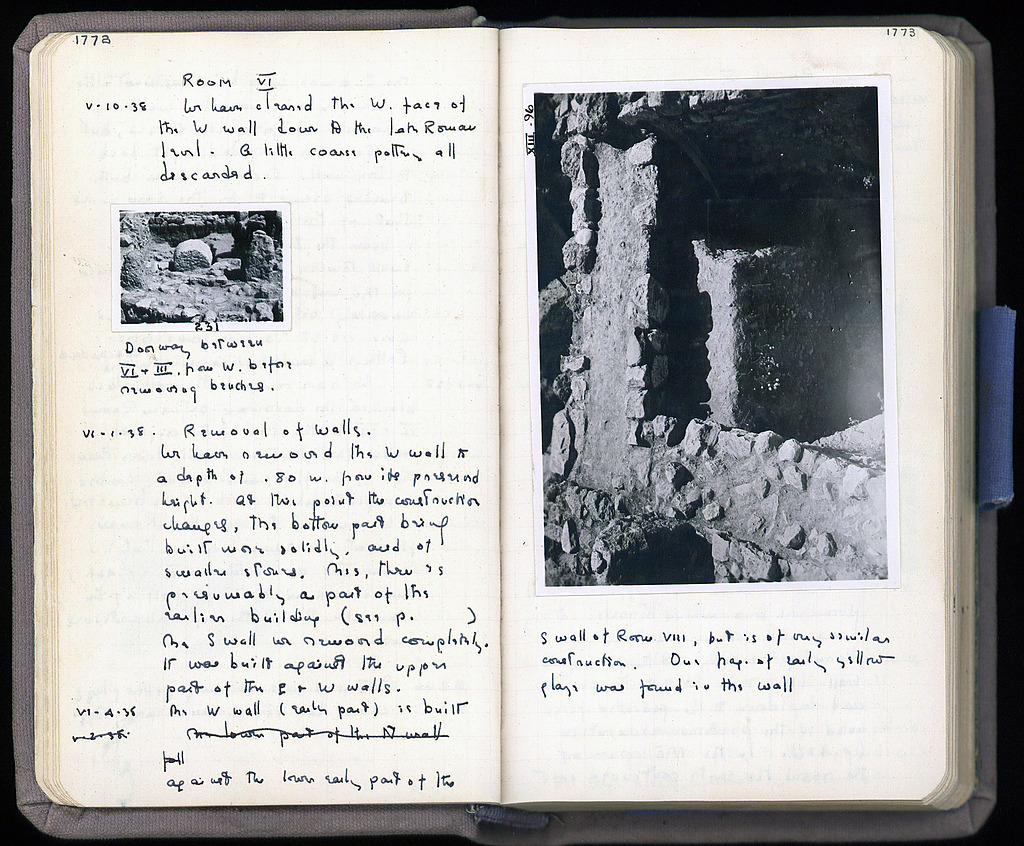 1772
ROOM VI
V-10-38 We have cleared the W. face of
the W wall down to the late Roman
level. A little coarse pottery all
descarded.
231
Doorway between
VI + III, from W. before
removing benches.
VI-1-38. Removal of Walls.
We have removed the W wall to
a depth of .80 m. from its preserved
height. At this point the construction
changes, the bottom part being
built more solidly, and of
smaller stones. This, then is
presumably a part of the
earlier building (see p. )
The S wall we removed completely.
It was built against the upper
part of the E + W walls.
VI-4-38 The W wall (early part) is built
VI-2-38. The lower part of the N wall
against the lower early part of the
1773
XIII. 96
S wall of Room VIII, but is of very similar
construction. One frag. of early yellow
glaze was found in the wall